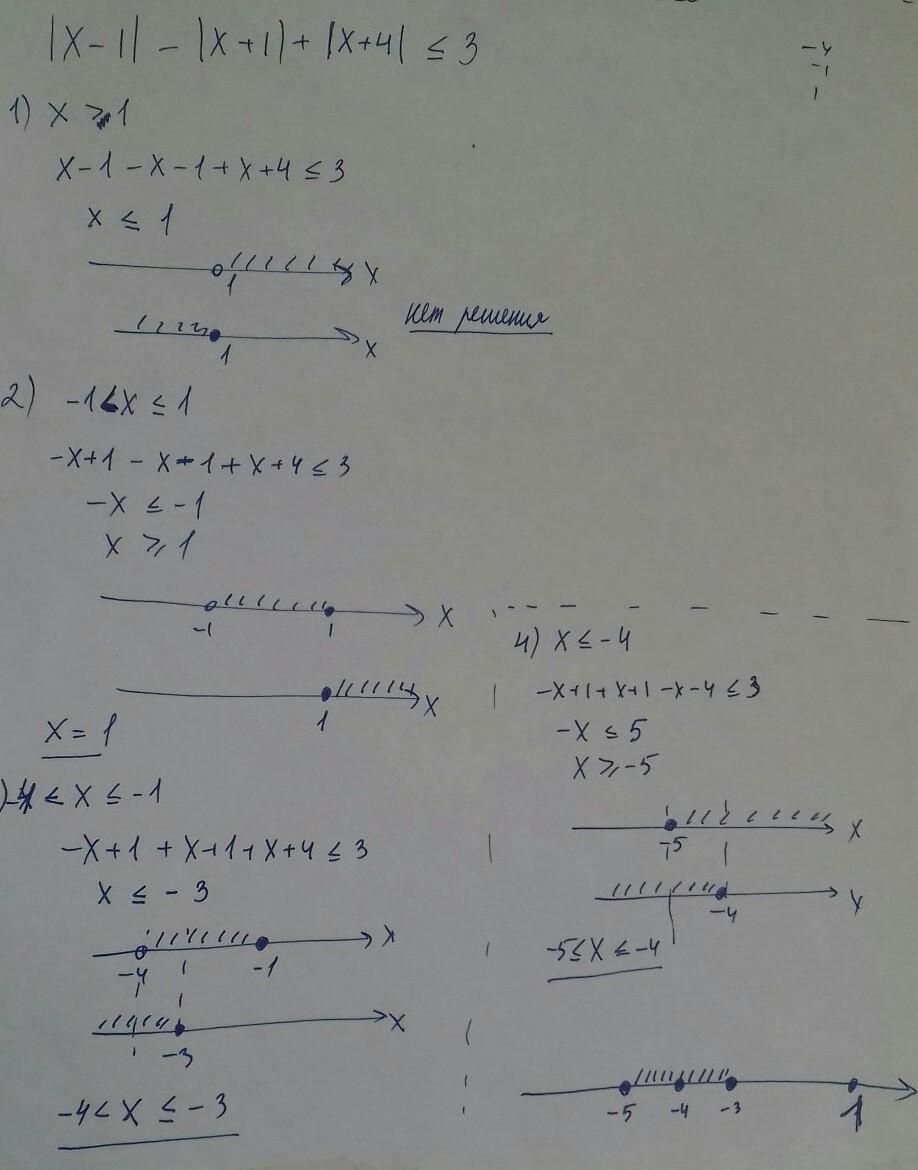 |x-1| - |x+1| + |x+4| ≤ 3
-4
-1
1
1) x > 1
x-1-x-1+x+4 ≤ 3
x ≤ 1
1 x
1 x
нет решения
2) -1 < x ≤ 1
-x+1-x-1+x+4 ≤ 3
-x ≤ -1
x ≥ 1
-1 1 x
1 x
x = 1
) -4 < x ≤ -1
-x+1+x+1+x+4 ≤ 3
x ≤ -3
-4 -1 x
-3 x
-4 < x ≤ -3
4) x ≤ -4
-x+1+x+1-x-4 ≤ 3
-x ≤ 5
x ≥ -5
-5 x
-4 x
-5 ≤ x ≤ -4
-5 -4 -3 1